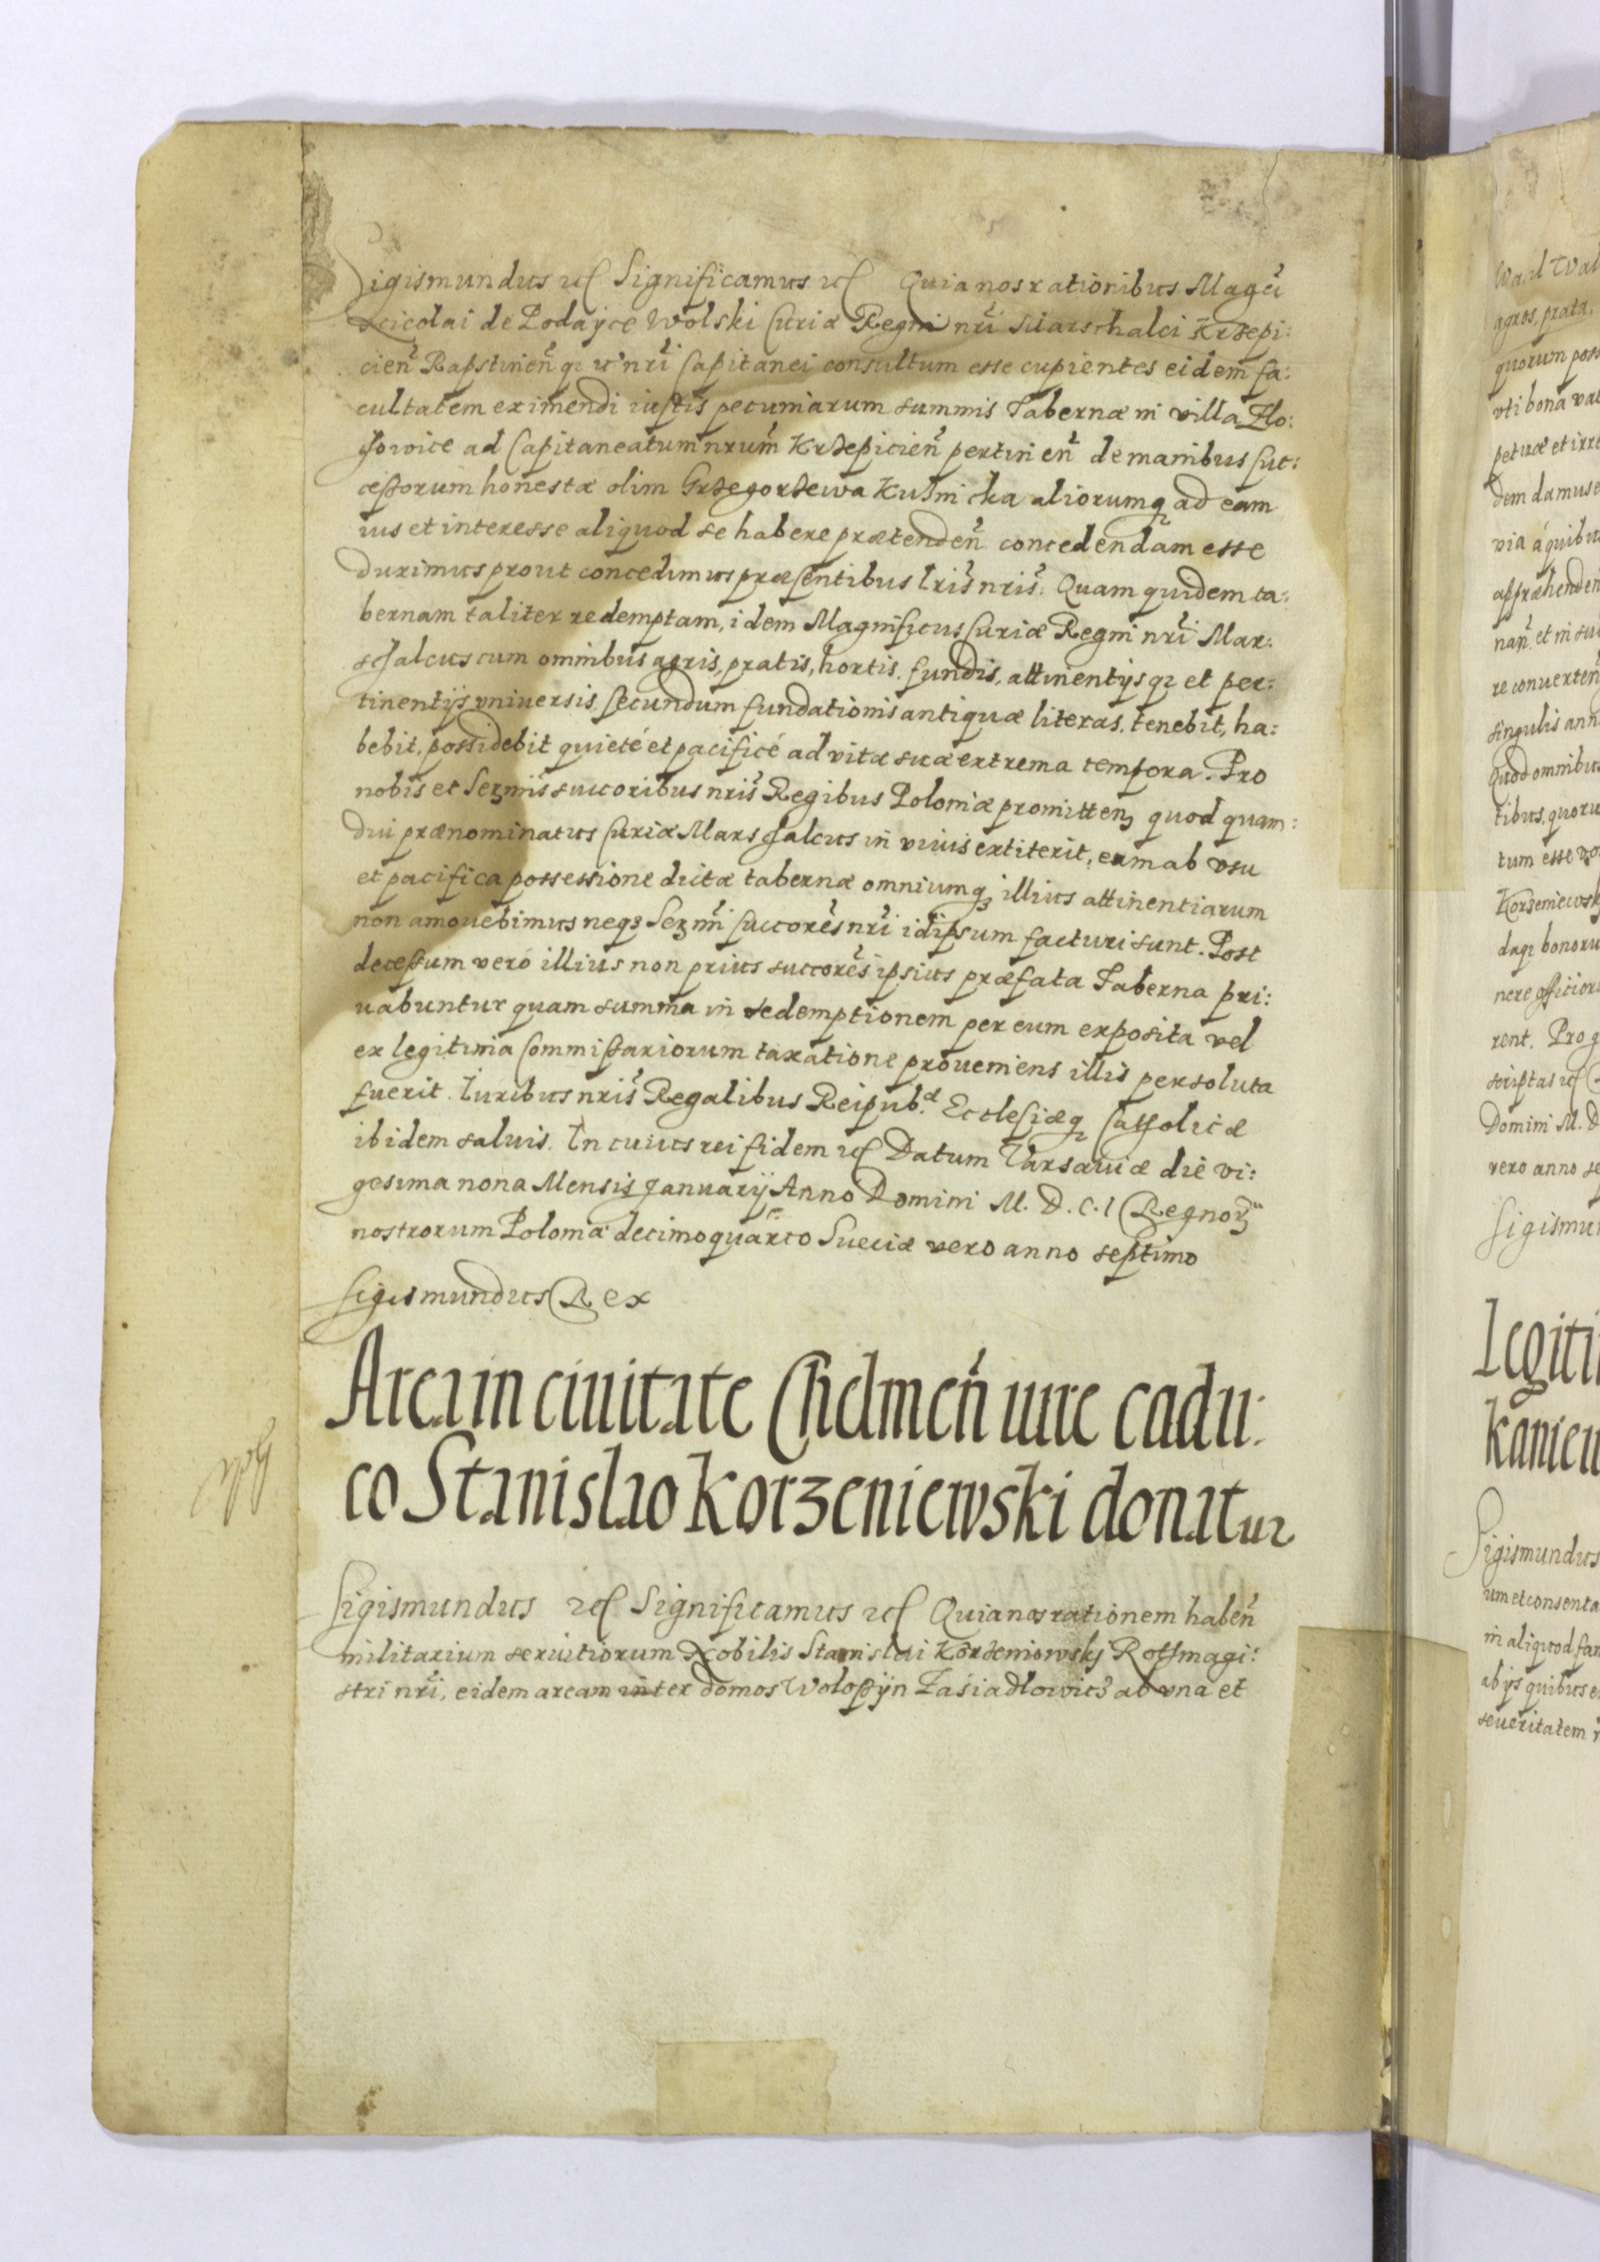 Sigismundus etc Significamus etc Quia nos rationibus Magci
Nicolai de Podayce Wolski Curiæ Regni nri Marschalci Krzepi:
cien Rapstinen qz et nri Capitanei consultum esse cupientes eidem fa:
cultatem eximendi iustis pecuniarum summis Tabernæ in villa Zlo:
chowice ad Capitaneatum nrum Krzepicien pertinen de manibus suc:
cessorum honestæ olim Grzegorzewa Kusnicka aliorumq ad eam
ius et interesse aliquod se habere prætenden concedendam esse
duximus prout concedimus præsentibus lris nris. Quam quidem ta:
bernam taliter redemptam, idem Magnificus Curiæ Regni nri Mar:
schalcus cum omnibus agris, pratis, hortis, fundis, attinentijs qz et per:
tinentijs vniuersis secundum fundationis antiquæ literas, tenebit, ha:
bebit, possidebit quieté et pacificé ad vitæ suæ extrema tempora. Pro
nobis et Sermis succoribus nris Regibus Poloniæ promitten, quod quam:
diu prænominatus Curiæ Marschalcus in viuis extiterit, eum ab vsu
et pacifica possessione dictæ tabernæ omniumq illius attinentiarum
non amouebimus neqz Sermi succores nri id ipsum facturi sunt. Post
decessum veró illius non prius succores ipsius præfata Taberna pri:
uabuntur quam summa in redemptionem per eum exposita vel
ex legitima Commissariorum taxatione proueniens illis persoluta
fuerit. Iuribus nris Regalibus Reipub.æ Ecclesiæq Catholicæ
ibidem saluis. In cuius rei fidem etc Datum Varsauiæ die vi:
gesima nona Mensis Januarij Anno Domini M. D. C. I Regnoru
nostrorum Poloniæ decimoquarto Sueciæ vero anno septimo
Sigismundus Rex
Area in ciuitate Chelmen iure cadu:
co Stanislao Korzeniewski donatur
Sigismundus etc Significamus etc Quia nos rationem haben
militarium seruitiorum Nobilis Stanislai Korzeniowskj Rothmagi:
stri nri, eidem aream inter domos Woloszyn Zasiadlowicz ab vna et
Legiti
kanieu
Sigismundus
um et consenta
in aliquod fa
ab ijs quibus e
seueritatem
agros, prata,
quorum poss
vti bona va
petuæ et irre
dem damus e
via á quibu
singulis ann
Quod omnibus
tibus, quoru
tum esse vo
Korzeniewsk
daqz bonoru
nere officior
rent. Pro q
scriptas etc
Domini M. D
vero anno se
Sigismu